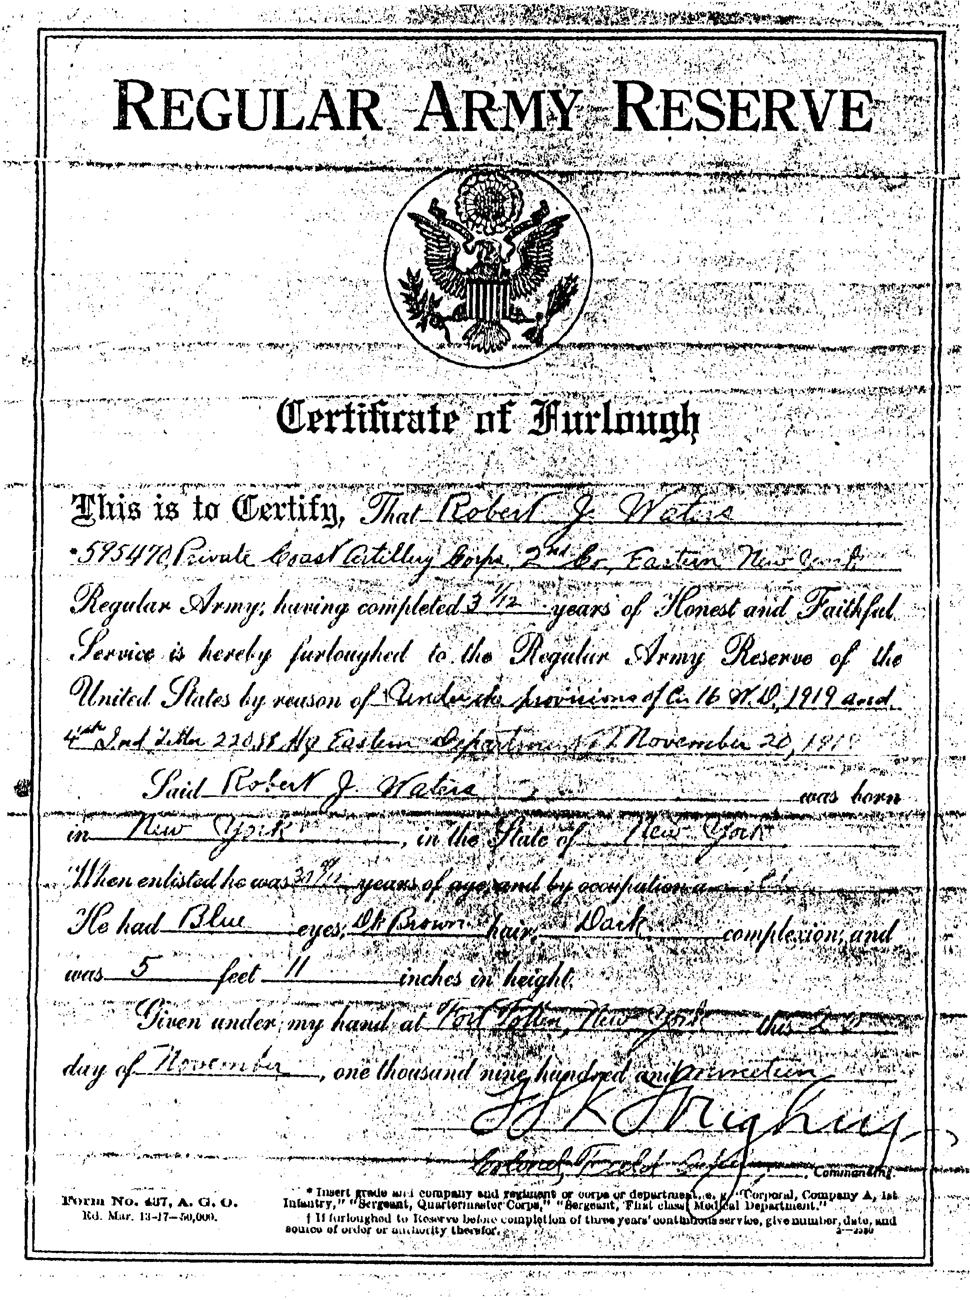 REGULAR ARMY RESERVE
Certificate of Furlough
This is to Certify, That Robert J. Waters
*595470, Private Coast Artillery Corps, 2nd Co, Eastern New York
Regular Army; having completed 3 1/12 years of Honest and Faithful
Service is hereby furloughed to the Regular Army Reserve of the
United States by reason of Under the provisions of C. 16 W.D. 1919 and
4th Ind Letter Hq Eastern Department November 20, 1919
Said Robert J. Waters was born
in New York, in the State of New York.
When enlisted he was years of age, and by occupation a
He had Blue eyes, Dk Brown hair, Dark complexion, and
was 5 feet 11 inches in height.
Given under my hand at Fort Totten, New York this
day of November, one thousand nine hundred and nineteen
Colonel, Commanding.
Form No. 437, A. G. O.
Ed. Mar. 13-17—50,000.
* Insert grade and company and regiment or corps or department, e. g., "Corporal, Company A, 1st
Infantry," "Sergeant, Quartermaster Corps," "Sergeant, First class, Medical Department."
† If furloughed to Reserve before completion of three years' continuous service, give number, date, and
source of order or authority therefor.